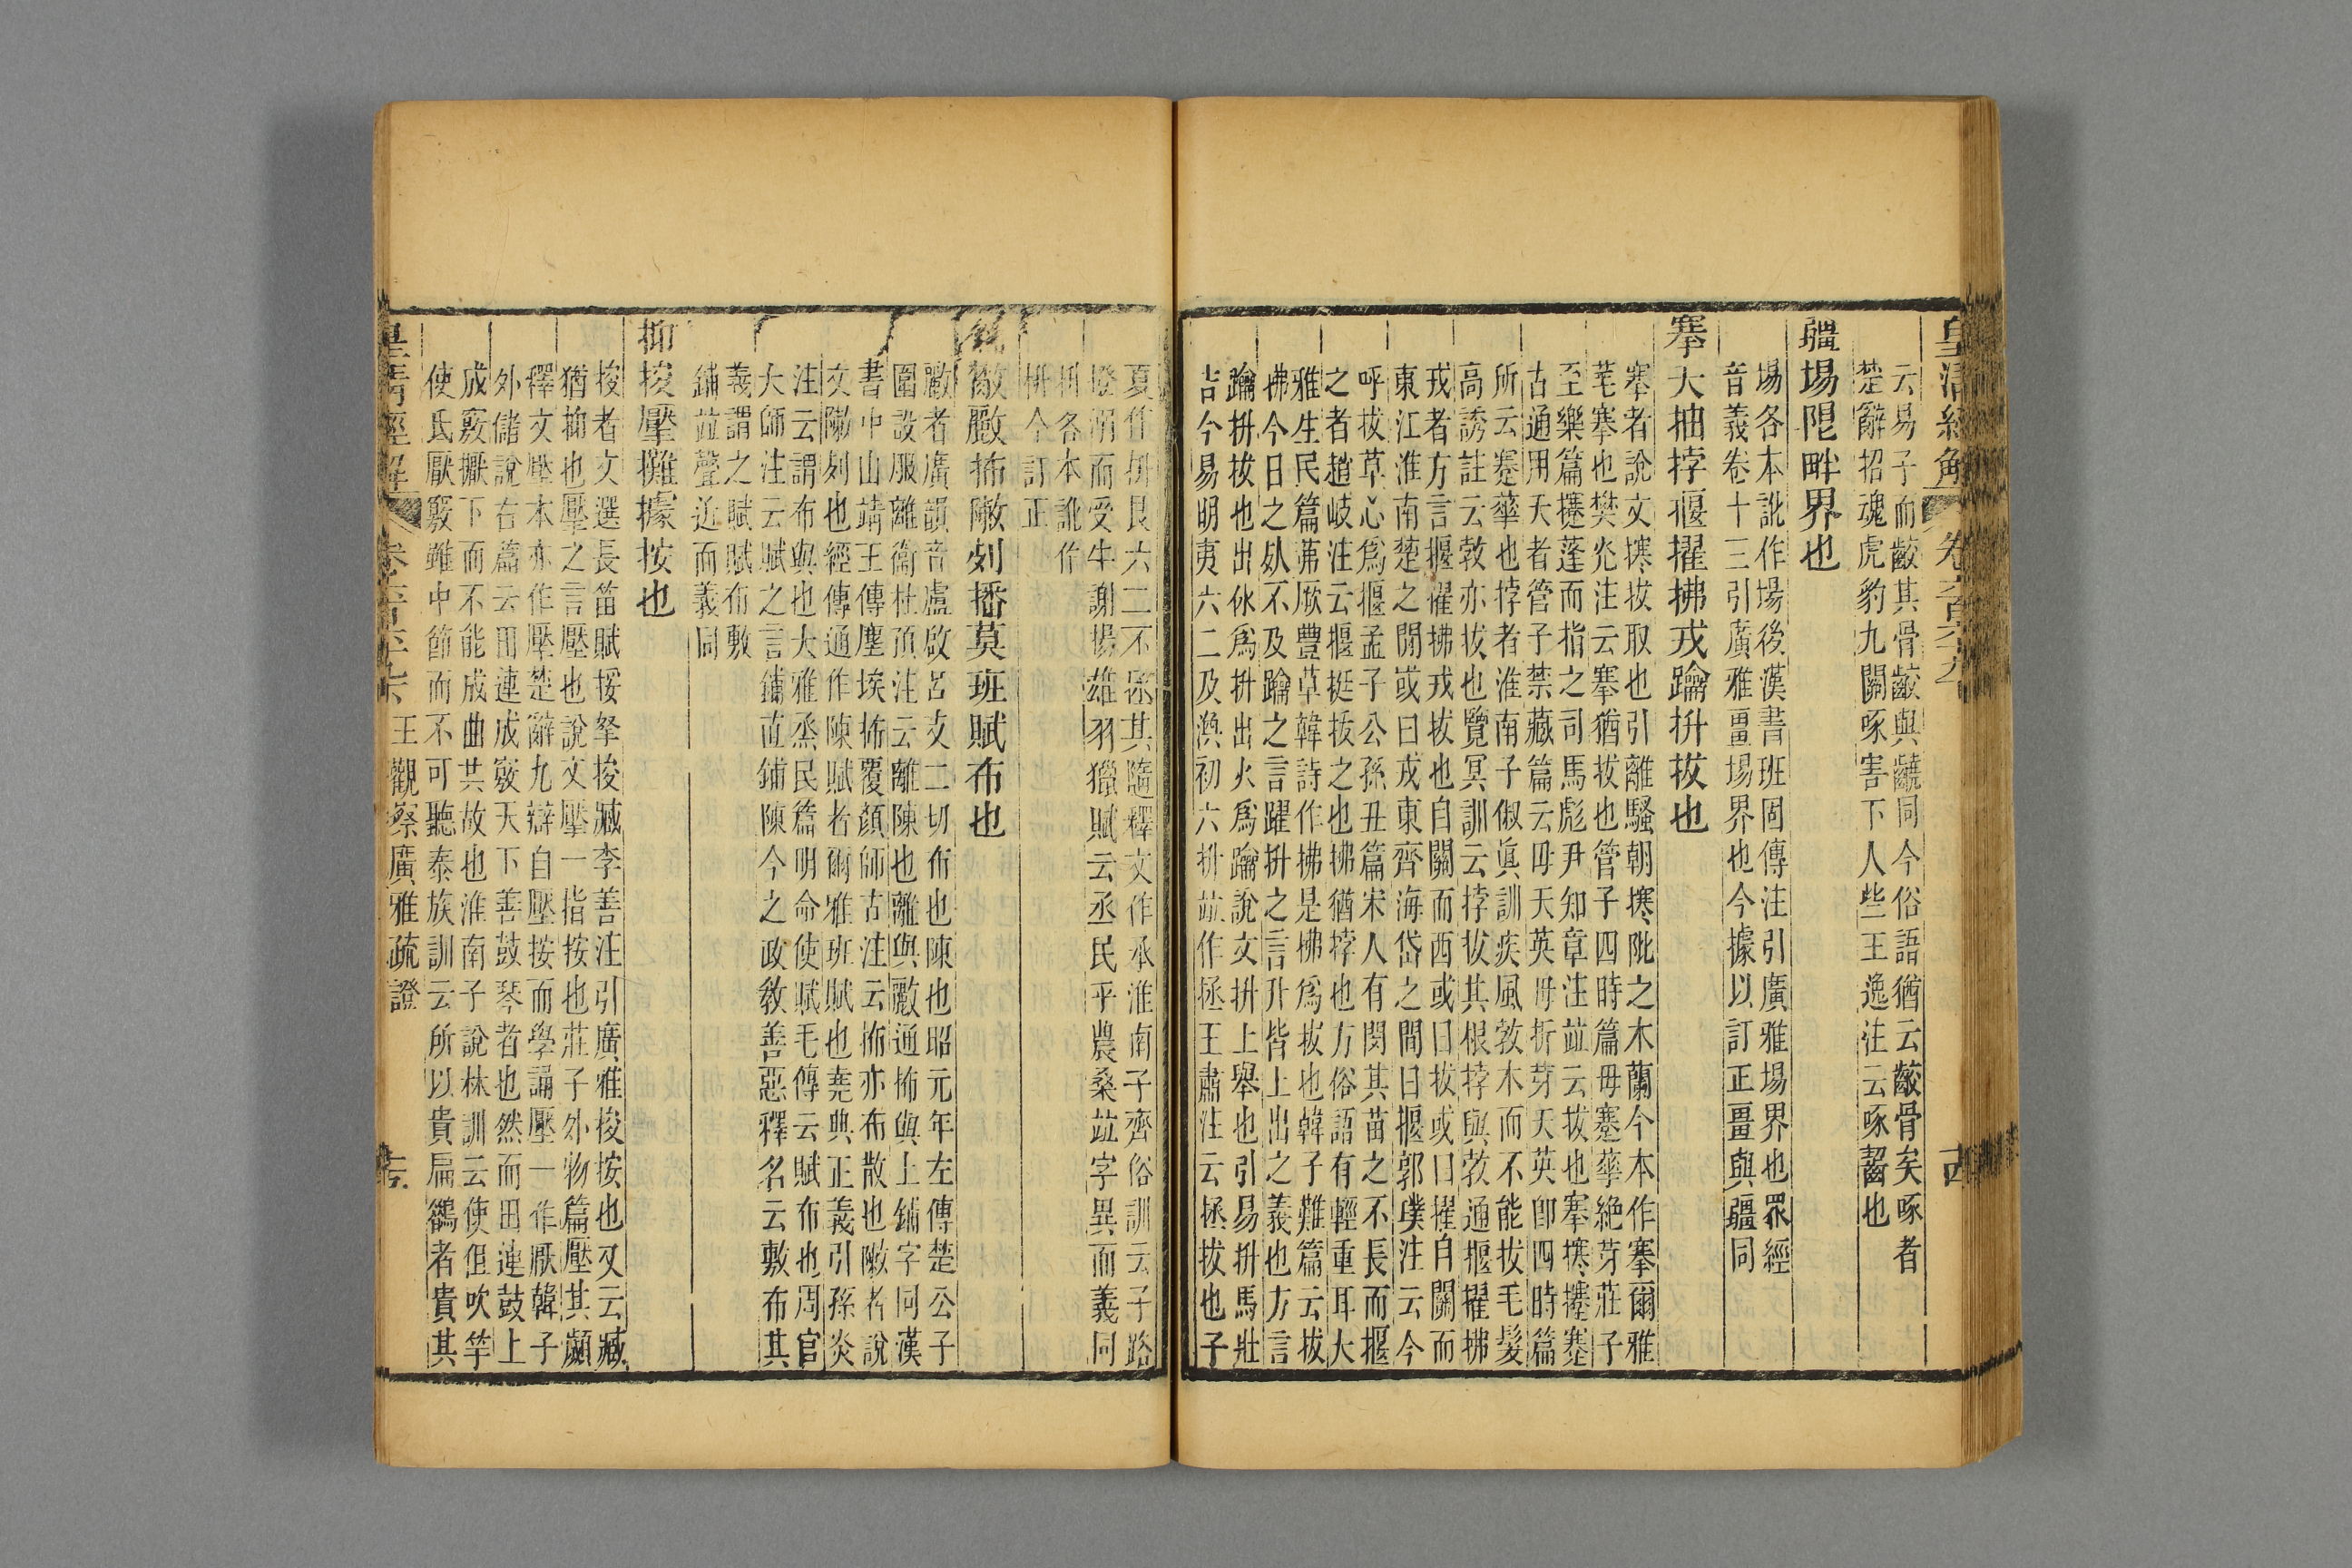 皇清經解 卷六百六十九 古
云易子而齩其骨齩與齧同今俗語猶云齩骨矣啄者
楚辭招魂虎豹九關啄害下人些王逸注云啄齧也
疆埸限畔界也
埸各本訛作場後漢書班固傳注引廣雅埸界也眾經
音義卷十三引廣雅畺埸界也今據以訂正畺與疆同
搴大抽挬揠擢拂戎踚拚拔也
搴者說文㩃拔取也引離騷朝㩃阰之木蘭今本作搴爾雅
芼搴也樊光注云搴猶拔也管子四時篇毋蹇華絕芽莊子
至樂篇攓蓬而指之司馬彪尹知章注竝云拔也搴㩃攓蹇
古通用夭者管子禁藏篇云毋夭英毋折芽夭英卽四時篇
所云蹇華也挬者淮南子俶眞訓疾風敦木而不能拔毛髮
高誘註云敦亦拔也覽冥訓云挬拔其根挬與敦通揠擢拂
戎者方言揠擢拂戎拔也自關而西或曰拔或曰擢自關而
東江淮南楚之閒或曰戎東齊海岱之間曰揠郭璞注云今
呼拔草心爲揠孟子公孫丑篇宋人有閔其苗之不長而揠
之者趙岐注云揠挺拔之也拂猶挬也方俗語有輕重耳大
雅生民篇茀厥豐草韓詩作拂是拂爲拔也韓子難篇云拔
拂今日之死不及踚之言躍拚之言升皆上出之義也方言
踚拚拔也出休爲拚出火爲踚說文拚上舉也引易拚馬壯
吉今易明夷六二及渙初六拚竝作拯王肅注云拯拔也子
夏作拚艮六二不拯其隨釋文作承淮南子齊俗訓云子路
撜溺而受牛謝揚雄羽獵賦云丞民乎農桑竝字異而義同
拚各本訛作
拚今訂正
敶㪚抪敶列播莫班賦布也
㪚者廣韻音盧啟呂支二切布也陳也昭元年左傳楚公子
圍設服離衞杜預注云離陳也離與㪚通抪與上鋪字同漢
書中山靖王傳塵埃抪覆顏師古注云抪亦布散也敶者說
文敶列也經傳通作陳賦者爾雅班賦也堯典正義引孫炎
注云謂布與也大雅烝民篇明命使賦毛傳云賦布也周官
大師注云賦之言鋪直鋪陳今之政敎善惡釋名云敷布其
義謂之賦賦布敷
鋪竝聲近而義同
抑捘壓攡據按也
捘者文選長笛賦挼拏捘臧李善注引廣雅捘按也又云臧
猶抑也壓之言壓也說文壓一指按也莊子外物篇壓其顪
釋文壓本亦作壓楚辭九辯自壓按而學誦壓一作厭韓子
外儲說右篇云田連成竅天下善鼓琴者也然而田連鼓上
成竅擫下而不能成曲共故也淮南子說林訓云使但吹竽
使氐厭竅雖中節而不可聽泰族訓云所以貴扁鵲者貴其
皇清經解 卷六百六十九下 王觀察廣雅疏證 古